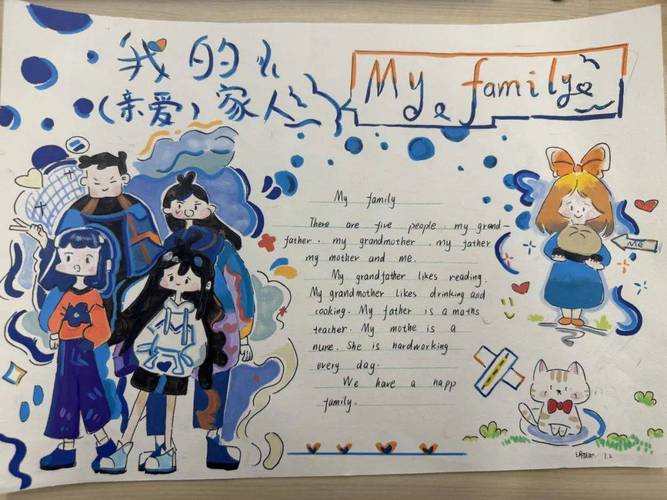 我的
(亲爱)家人
My family
My family
There are five people. my grand-
father. my grandmother. my father
my mother and me.
My grandfather likes reading.
My grandmother likes drinking and
cooking. My father is a maths
teacher. My mothe is a
nurse. She is hardworking
every day.
We have a napp
family.
Me
1.2